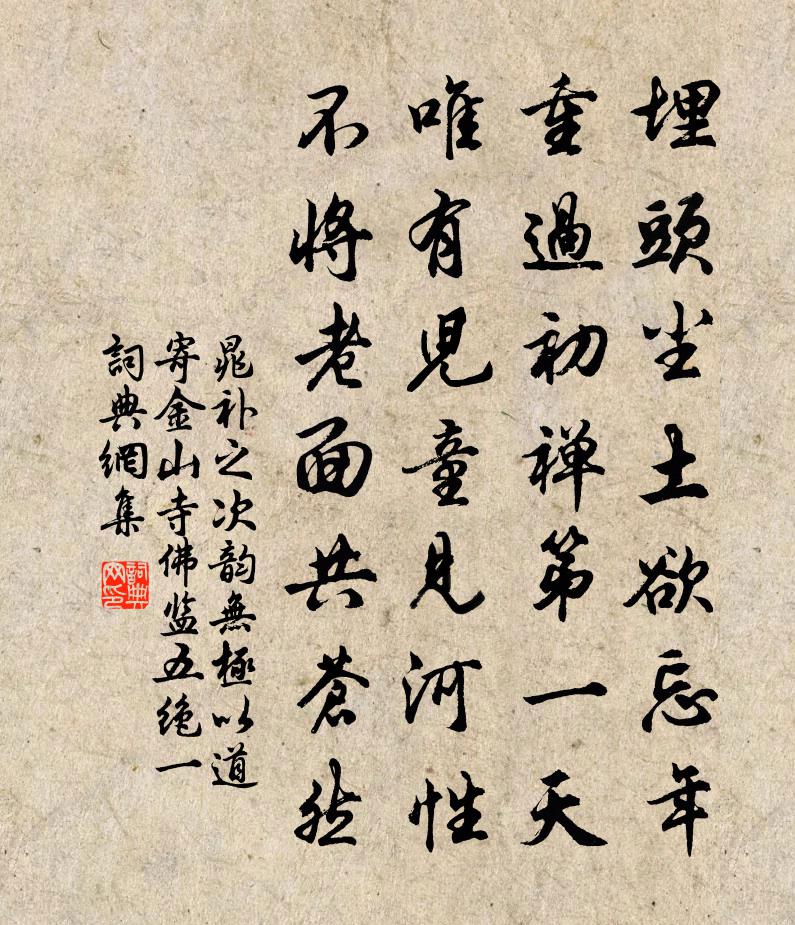 埋頭尘土欲忘年
重過初禅第一天
唯有児童見河性
不將老面共蒼然
晁补之次韵無極以道
寄金山寺佛监五绝一
詞典網集
詞典網印